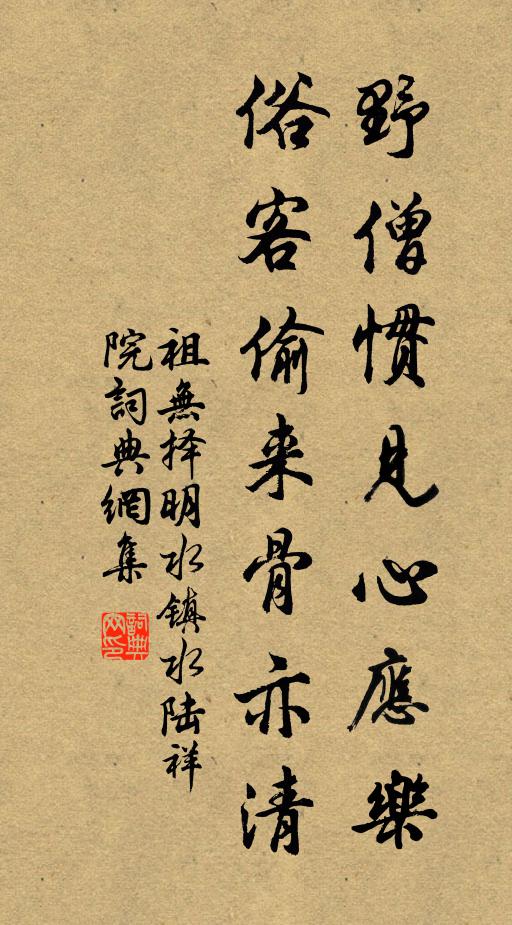 野僧慣見心應樂
俗客偷来骨亦清
祖無择明水镇水陆祥
院詞典網集
詞典網印